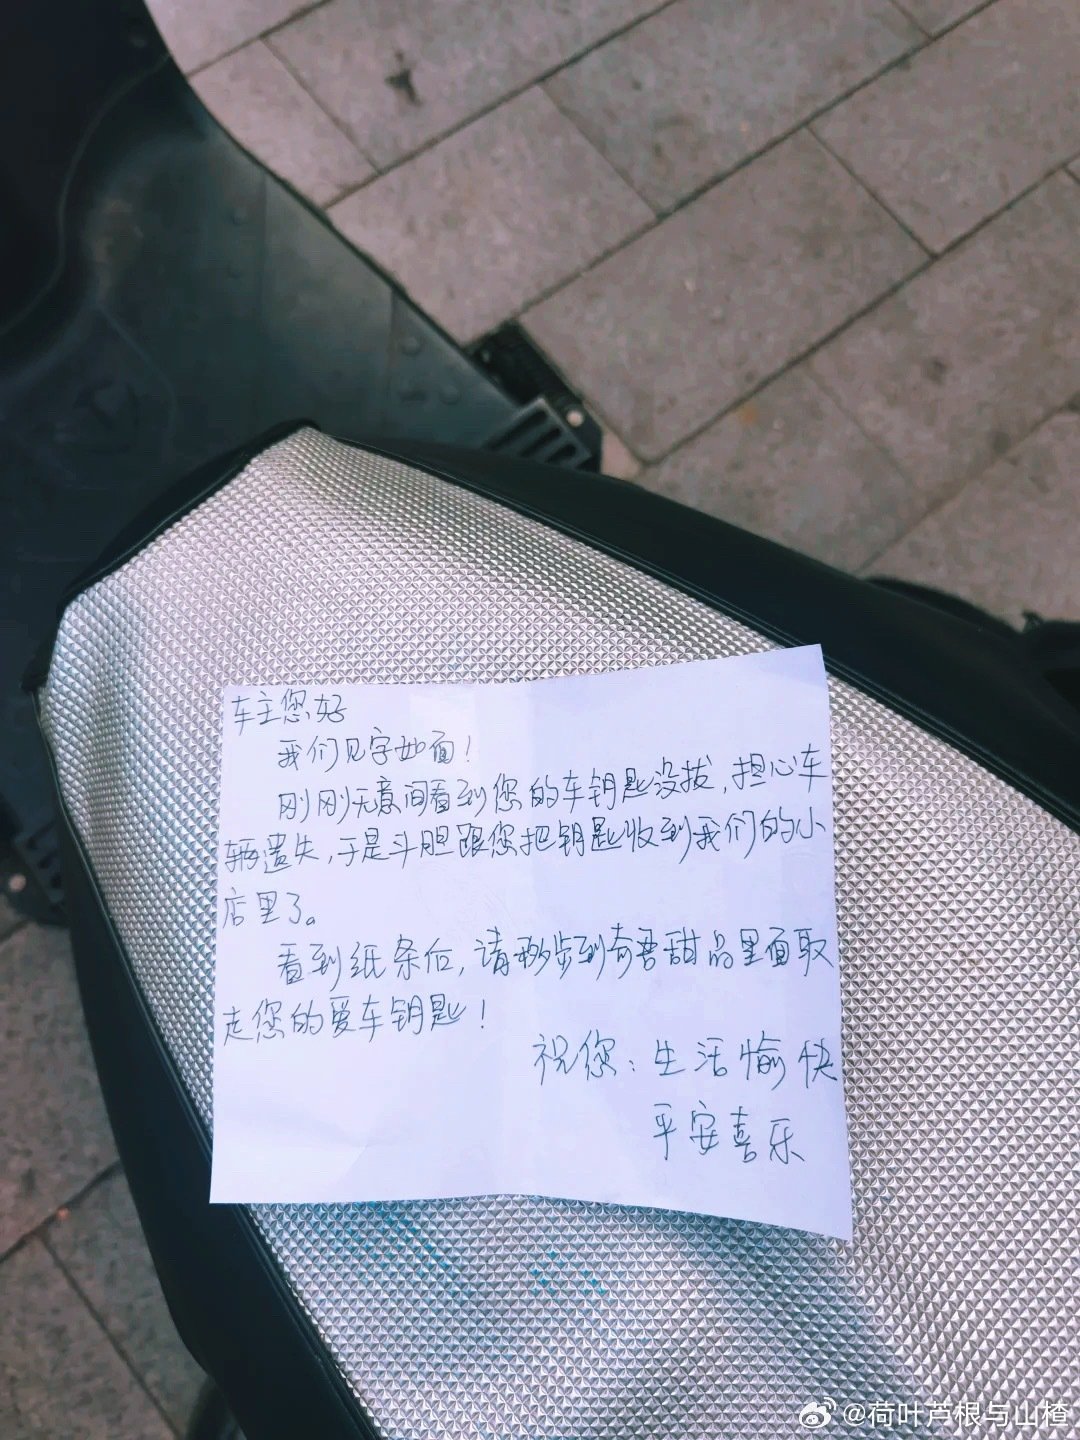 车主您好
我们见字如面！
刚刚无意间看到您的车钥匙没拔，担心车
辆遗失，于是斗胆跟您把钥匙收到我们的小
店里了。
看到纸条后，请移步到奇吾甜品里面取
走您的爱车钥匙！
祝您：生活愉快
平安喜乐
@荷叶芦根与山楂